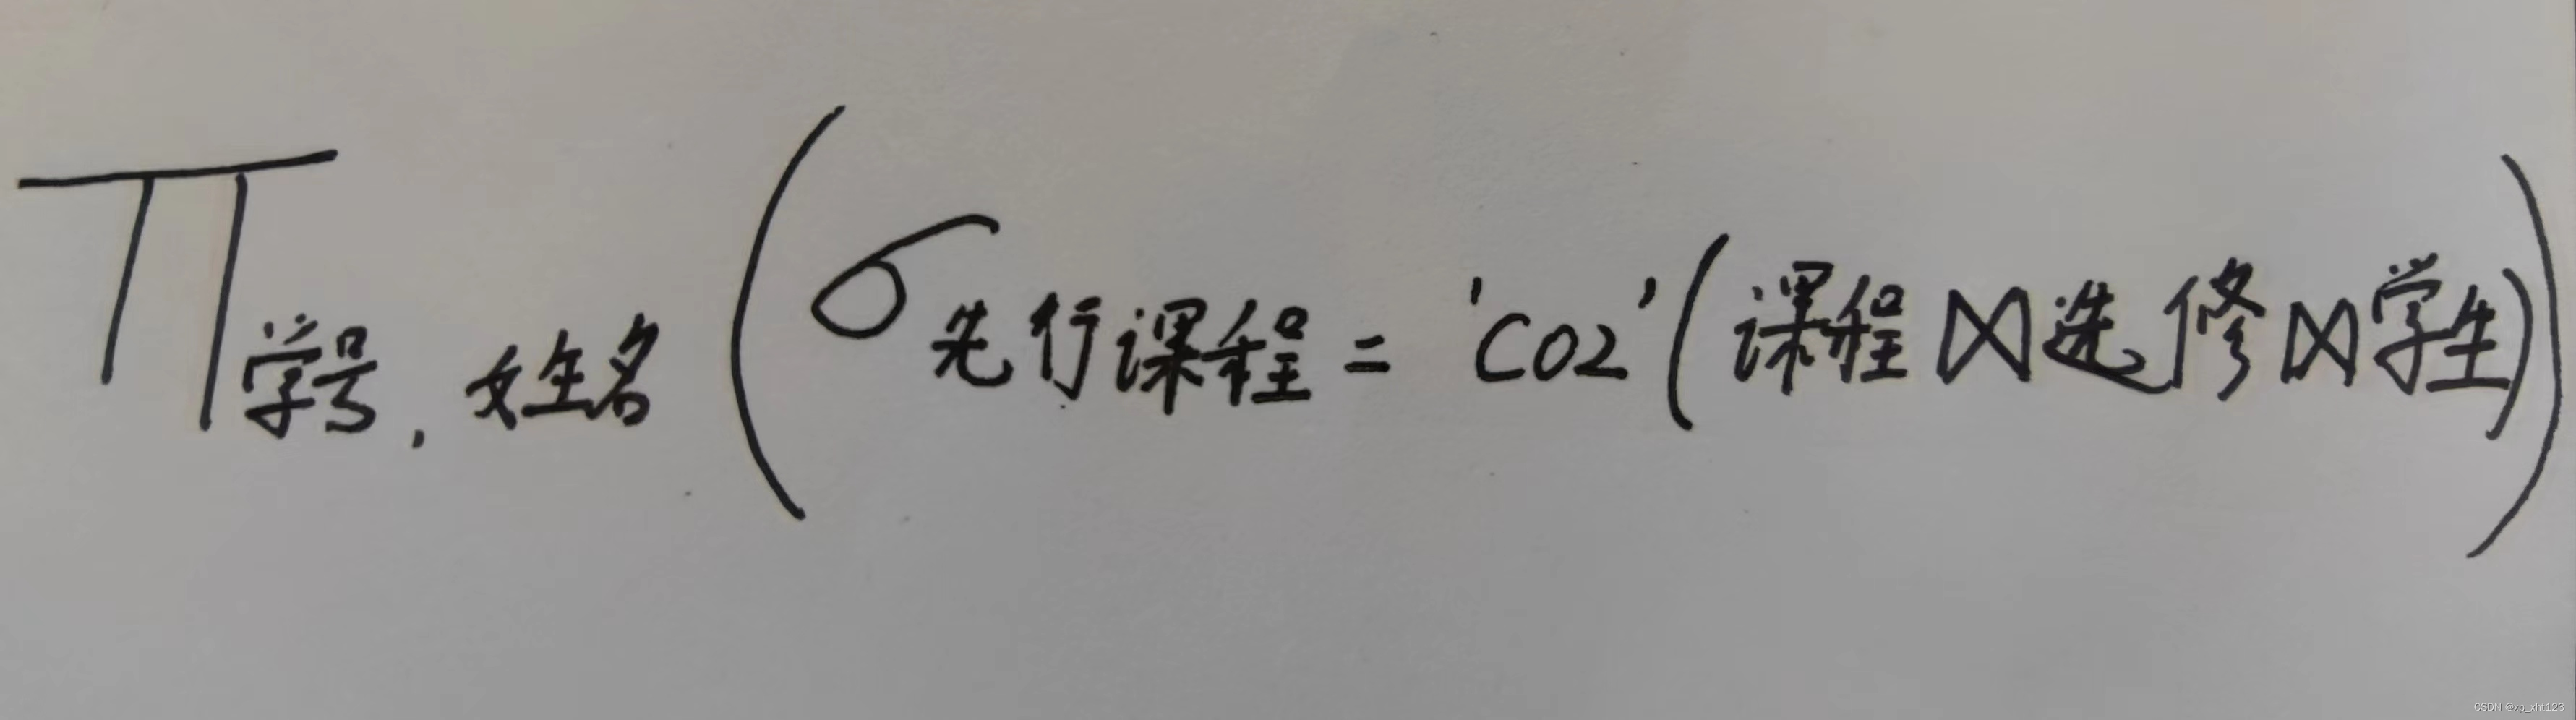 Π学号,姓名(σ先行课程='C02'(课程⋈选修⋈学生))
CSDN @xp_xht123